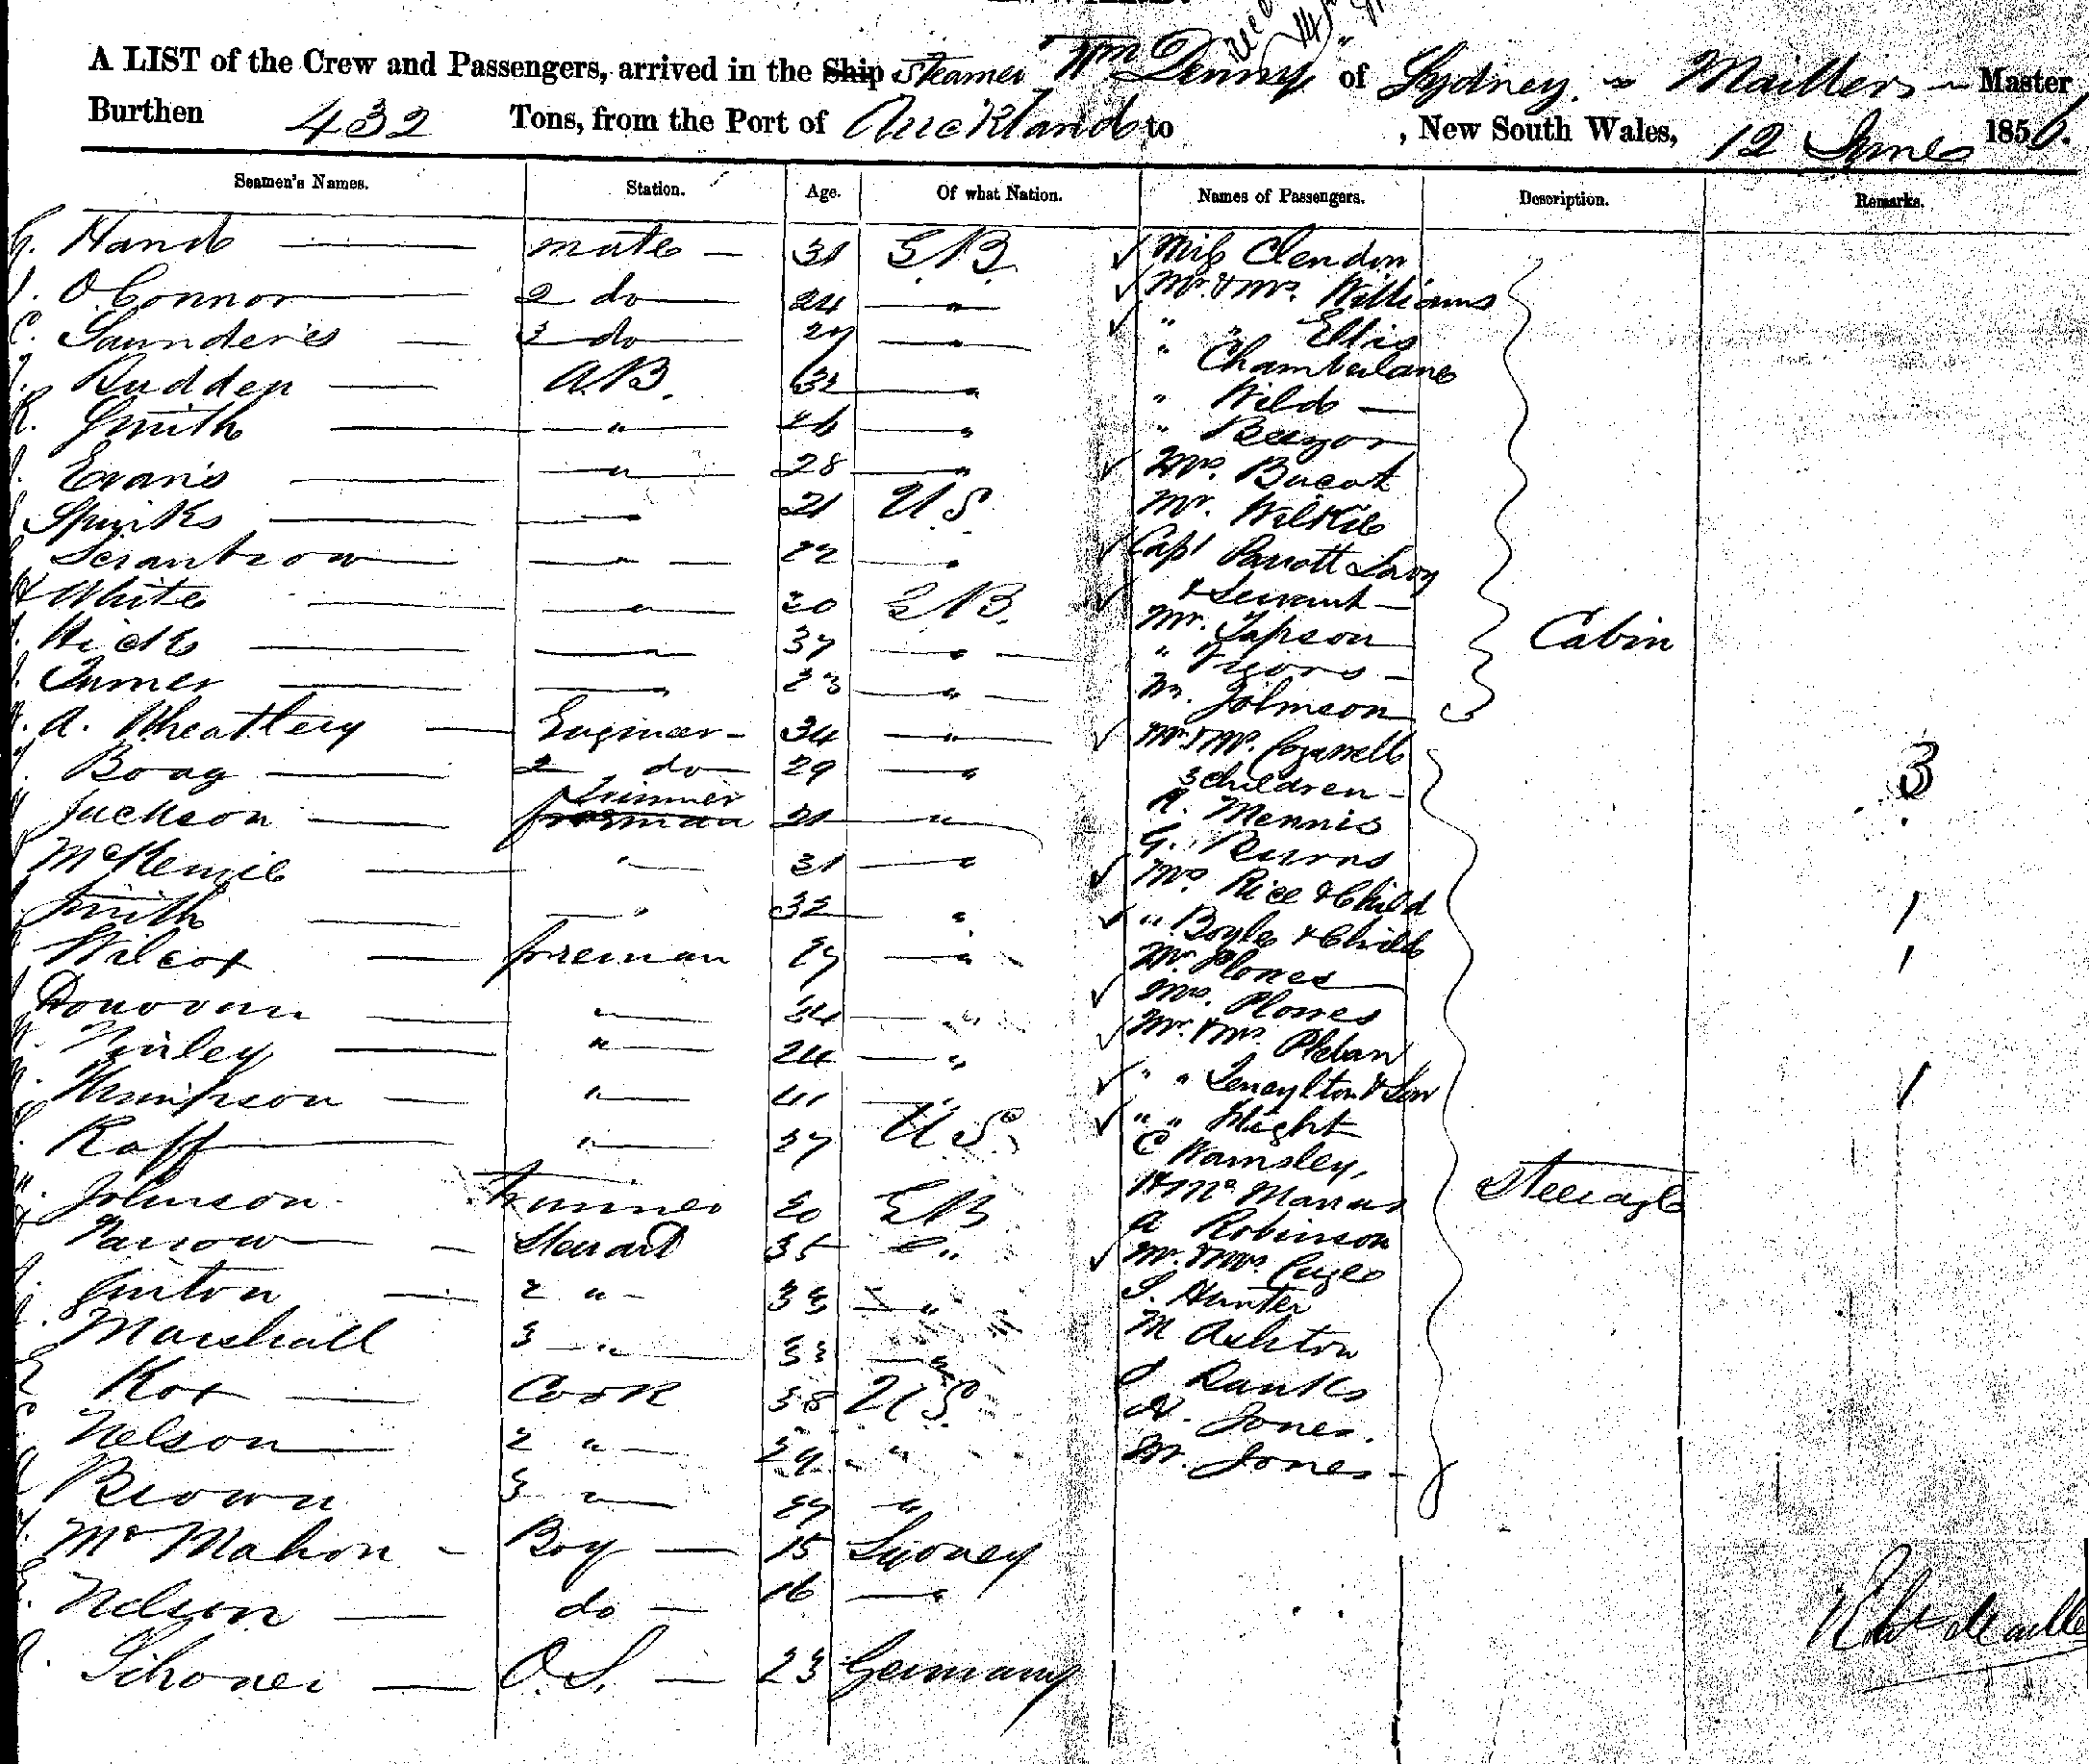 A LIST of the Crew and Passengers, arrived in the Ship Steamer Wm Denny of Sydney Maillers Master
Burthen 432 Tons, from the Port of Auckland to , New South Wales, 12 June 1856.
Seamen's Names. Station. Age. Of what Nation. Names of Passengers. Description. Remarks.
G. Hand mate 31 G.B. Miss Clendon
J. O'Connor 2 do 24 " Mr & Mrs. Williams
C. Saunders 3 do 27 " " " Ellis
Rudden A.B. 32 " " Chamberlane
R. Smith " 26 " " Wild
" Beezor
J. Evans " 28 " Mr. Bucat
Spinks " 21 U.S. Mr. Wilkie
Scrantrow " 22 " Capt Parrott Lady
White " 20 G.B. & Servant
Hick " 37 " Mr. Tapson
J. Turner " 23 " " Tizors
Mr. Johnson
Cabin
A. Wheatley Engineer 34 " Mr & Mrs. Cozarrell
Boag 2 do 29 " 3 children 3
Jackson Trimmer foreman 21 " A. Mennis
McKenzie " 31 " G. Burns
Smith " 32 " Mrs Rice & Child 1
Wilcox foreman 27 " " Boyle & Child 1
Mr. Plones
Donovan " 34 " Mrs. Plones
Finley " 24 " Mr. & Mrs. Phelan
Thompson " 41 " " & Son 1
Raff " 37 U.S. " " Hight
C Wamsley
Steerage
Johnson Trimmer 20 G.B. H McManus
A Robinson
Parrow Steward 35 " Mr. & Mrs. Cuzes
Ginton 2 " 33 " S. Hunter
Marshall 3 " 33 " M Ashton
Kox Cook 38 U.S. J Danks
Nelson 2 " 29 " N. Jones.
M. Jones
Brown 3 " 27 "
McMahon Boy 15 Sydney
Nelson do 16 "
Schoner O.S. 23 Germany